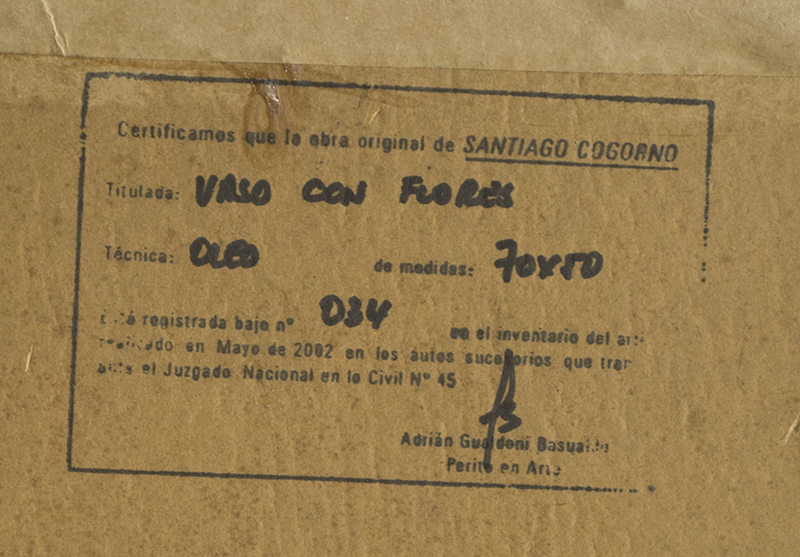 Certificamos que la obra original de SANTIAGO COGORNO
Titulada: VASO CON FLORES
Técnica: OLEO de medidas: 70x50
Está registrada bajo nº 034 en el inventario del
realizado en Mayo de 2002 en los autos sucesorios que
ante el Juzgado Nacional en lo Civil Nº 45
Adrián Gualdoni Basualdo
Perito en Arte